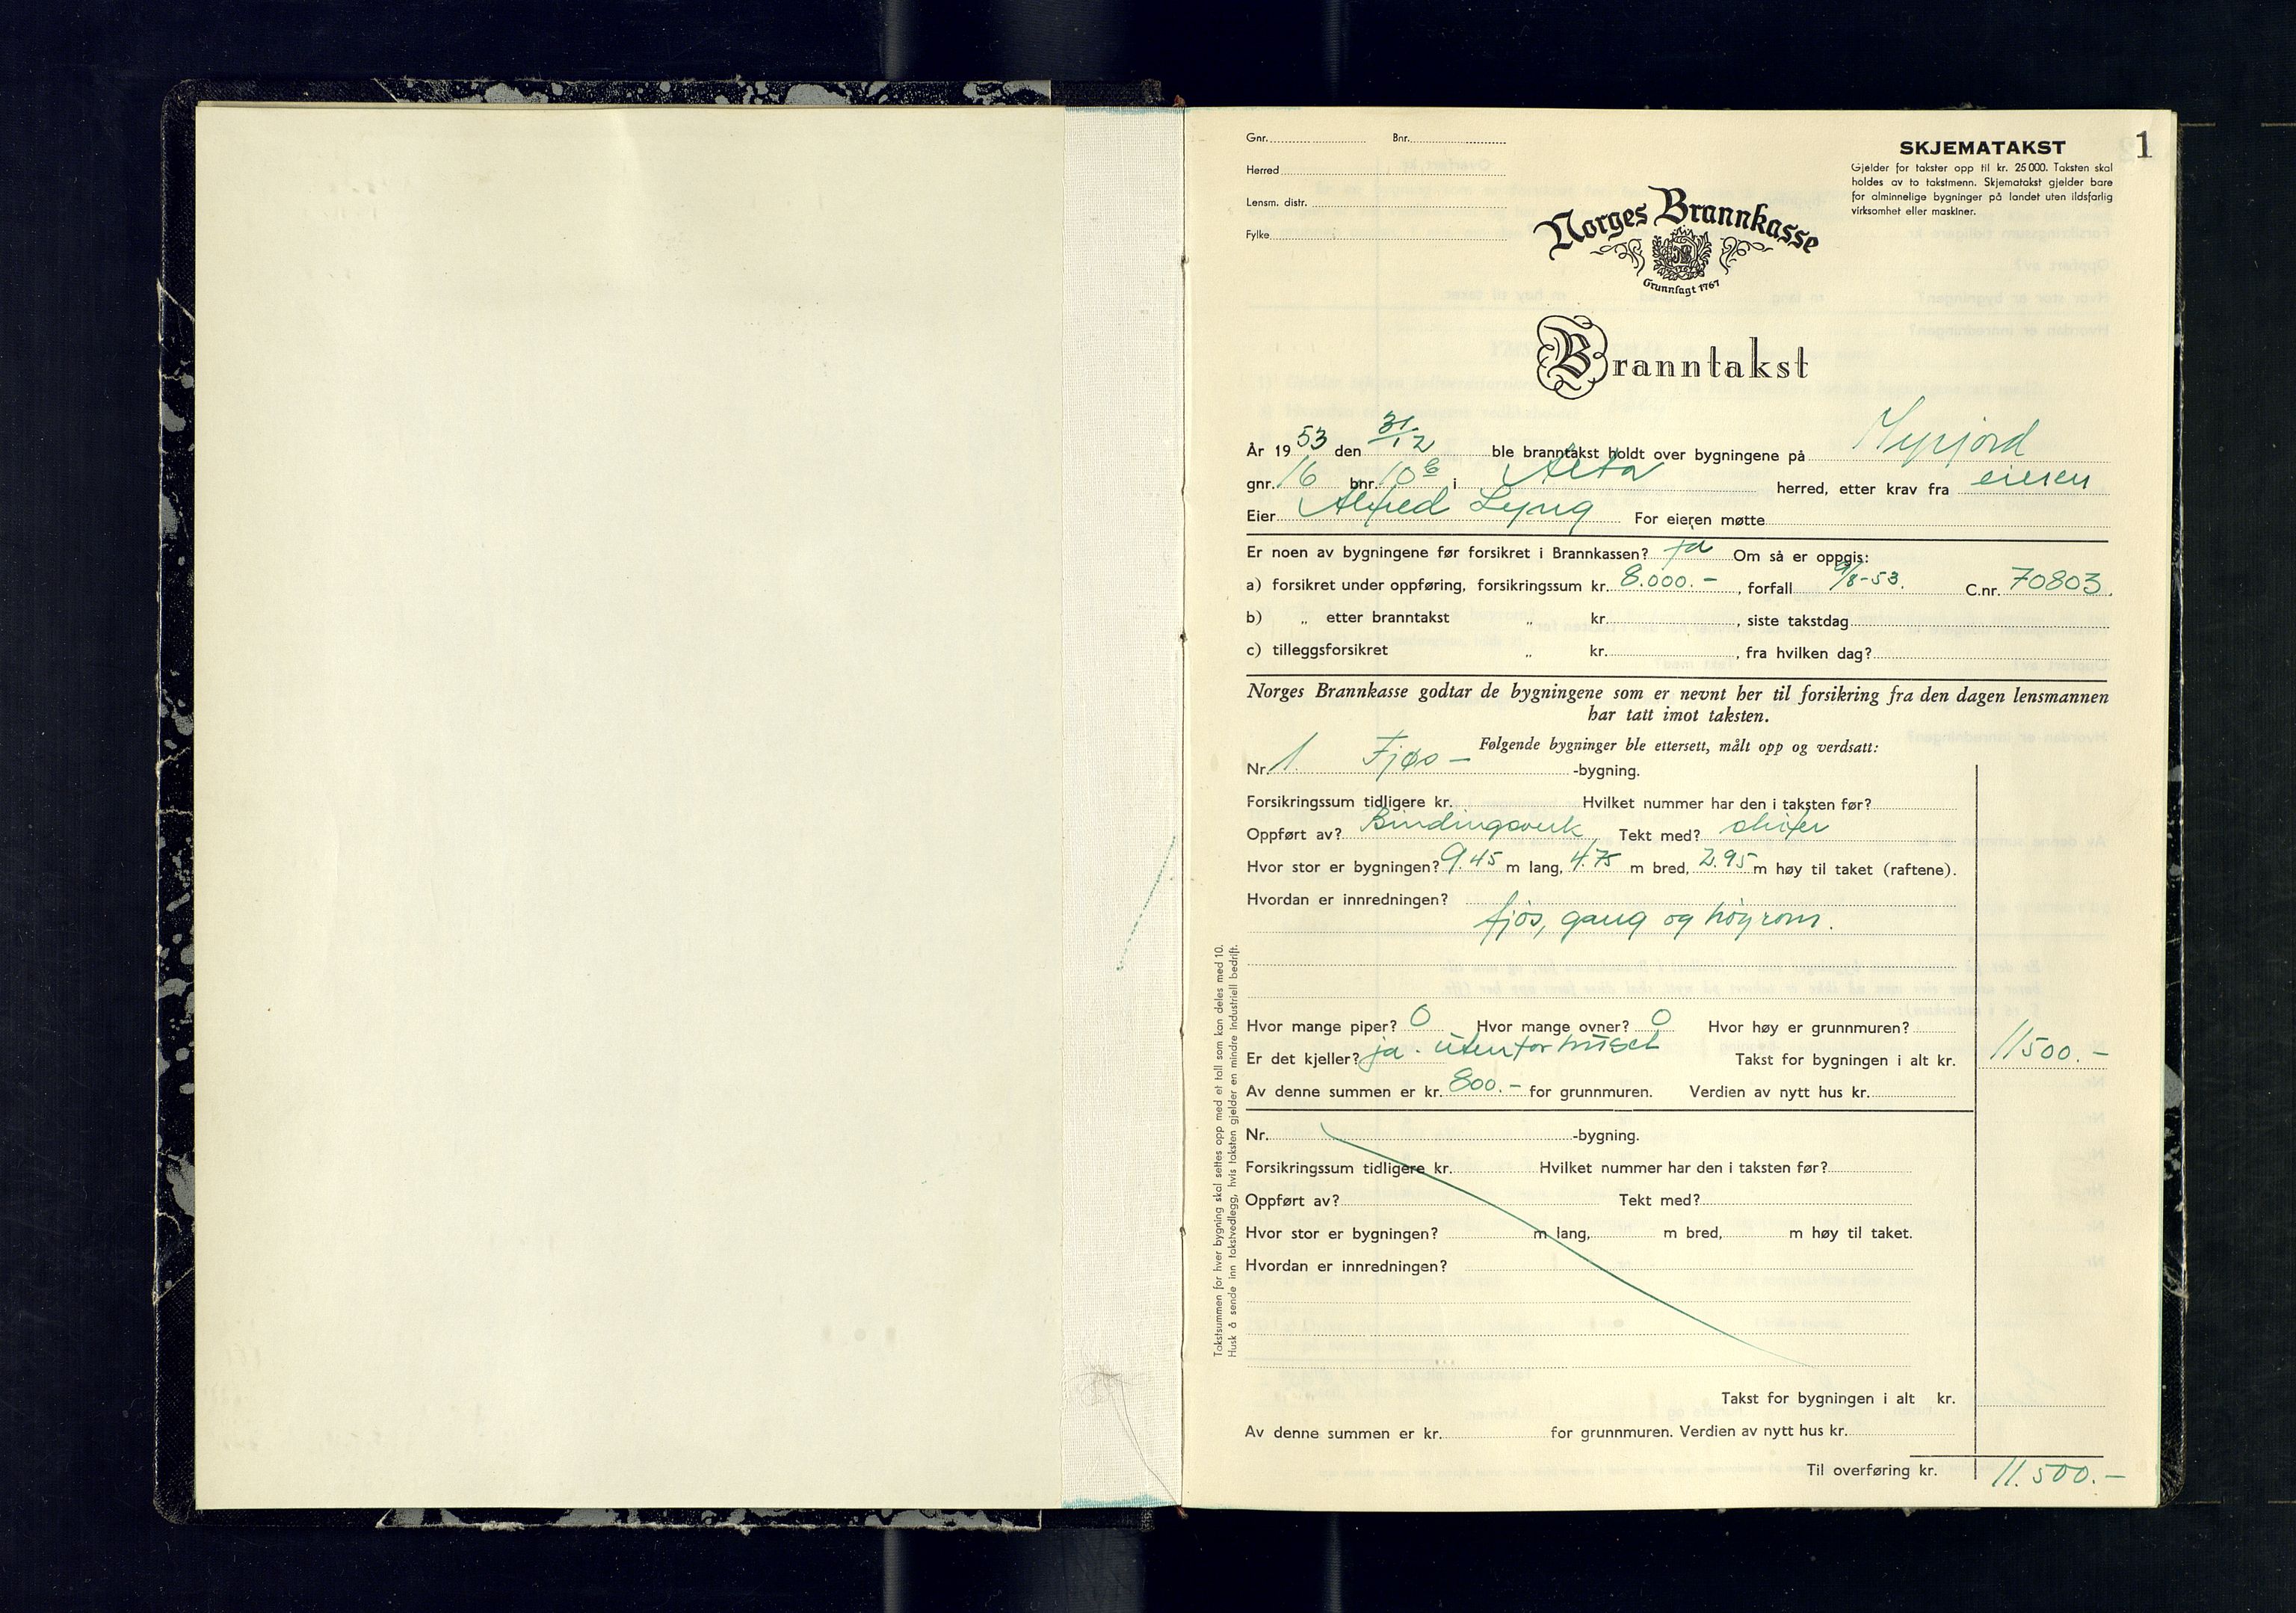 1
SKJEMATAKST
Gjelder for takster opp til kr. 25 000. Taksten skal
holdes av to takstmenn. Skjematakst gjelder bare
for alminnelige bygninger på landet uten ildsfarlig
virksomhet eller maskiner.
Gnr. Bnr.
Herred
Lensm. distr.
Fylke
Norges Brannkasse
Grunnlagt 1767
Branntakst
År 1953 den 31/12 ble branntakst holdt over bygningene på
gnr. 16 bnr. 10 i Alta herred, etter krav fra eieren
Eier Alfred Lyng For eieren møtte
Er noen av bygningene før forsikret i Brannkassen? ja Om så er oppgis:
a) forsikret under oppføring, forsikringssum kr. 8.000.- , forfall 9/8-53. C.nr. 70803.
b) „ etter branntakst „ kr. , siste takstdag
c) tilleggsforsikret „ kr. , fra hvilken dag?
Norges Brannkasse godtar de bygningene som er nevnt her til forsikring fra den dagen lensmannen
har tatt imot taksten.
Følgende bygninger ble ettersett, målt opp og verdsatt:
Nr. 1. Fjøs- -bygning.
Forsikringssum tidligere kr. Hvilket nummer har den i taksten før?
Oppført av? Bindingsverk Tekt med? skifer
Hvor stor er bygningen? 9.45 m lang, 4.75 m bred, 2.95 m høy til taket (raftene).
Hvordan er innredningen?
fjøs, gang og høyrom.
Hvor mange piper? 0 Hvor mange ovner? 0 Hvor høy er grunnmuren?
Er det kjeller? ja. utenfor huset Takst for bygningen i alt kr. 11500.-
Av denne summen er kr. 800.- for grunnmuren. Verdien av nytt hus kr.
Nr. -bygning.
Forsikringssum tidligere kr. Hvilket nummer har den i taksten før?
Oppført av? Tekt med?
Hvor stor er bygningen? m lang, m bred, m høy til taket.
Hvordan er innredningen?
Takst for bygningen i alt kr.
Av denne summen er kr. for grunnmuren. Verdien av nytt hus kr.
Til overføring kr. 11.500.-
Takstsummen for hver bygning skal settes opp med et tall som kan deles med 10.
Husk å sende inn takstvedlegg, hvis taksten gjelder en mindre industriell bedrift.